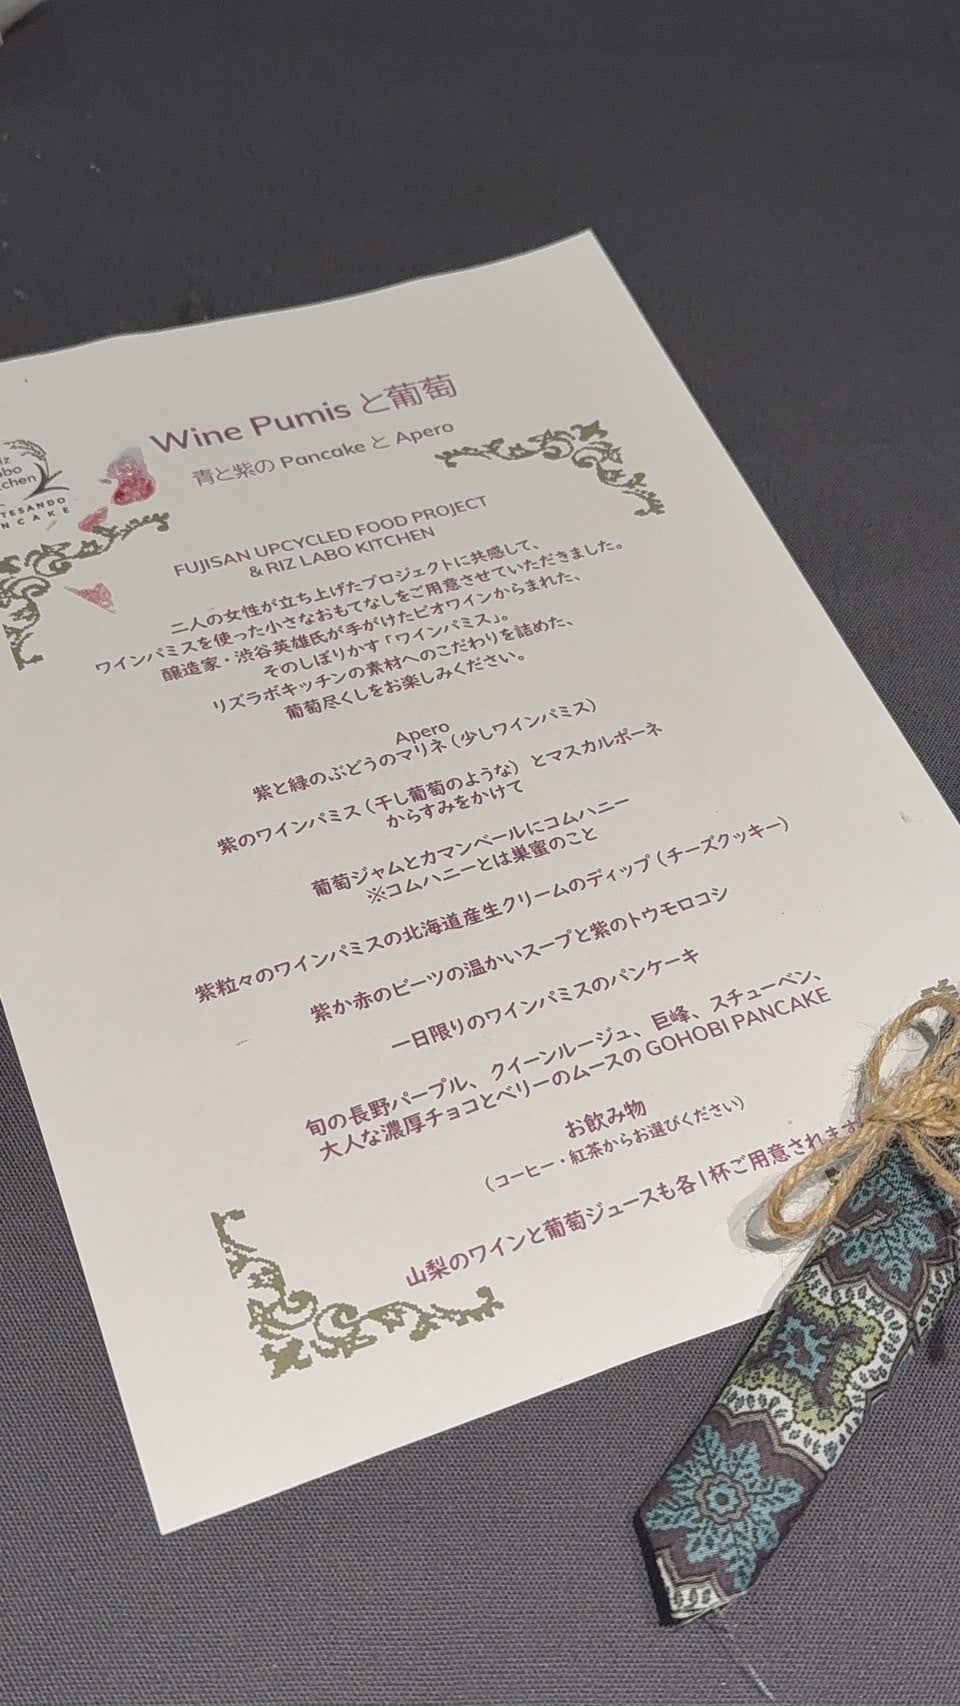 Wine Pumis と葡萄
青と紫の Pancake と Apero
FUJISAN UPCYCLED FOOD PROJECT
& RIZ LABO KITCHEN
二人の女性が立ち上げたプロジェクトに共感して、
ワインパミスを使った小さなおもてなしをご用意させていただきました。
醸造家・渋谷英雄氏が手がけたビオワインからまれた、
そのしぼりかす「ワインパミス」。
リズラボキッチンの素材へのこだわりを詰めた、
葡萄尽くしをお楽しみください。
Apero
紫と緑のぶどうのマリネ（少しワインパミス）
紫のワインパミス（干し葡萄のような）とマスカルポーネ
からすみをかけて
葡萄ジャムとカマンベールにコムハニー
※コムハニーとは巣蜜のこと
紫粒々のワインパミスの北海道産生クリームのディップ（チーズクッキー）
紫か赤のビーツの温かいスープと紫のトウモロコシ
一日限りのワインパミスのパンケーキ
旬の長野パープル、クイーンルージュ、巨峰、スチューベン、
大人な濃厚チョコとベリーのムースの GOHOBI PANCAKE
お飲み物
（コーヒー・紅茶からお選びください）
山梨のワインと葡萄ジュースも各1杯ご用意されます